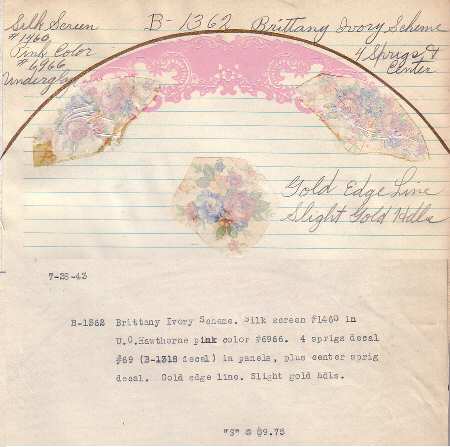 Silk Screen
#1460
Pink Color
#6966
Underglaze
B-1362 Brittany Ivory Scheme
4 Sprigs &
Center
Gold Edge Line
Slight Gold Hdls
7-28-43
B-1362 Brittany Ivory Scheme. Silk screen #1460 in
U.G.Hawthorne pink color #6966. 4 sprigs decal
#69 (B-1318 decal) in panels, plus center sprig
decal. Gold edge line. Slight gold hdls.
"S" @ $9.75